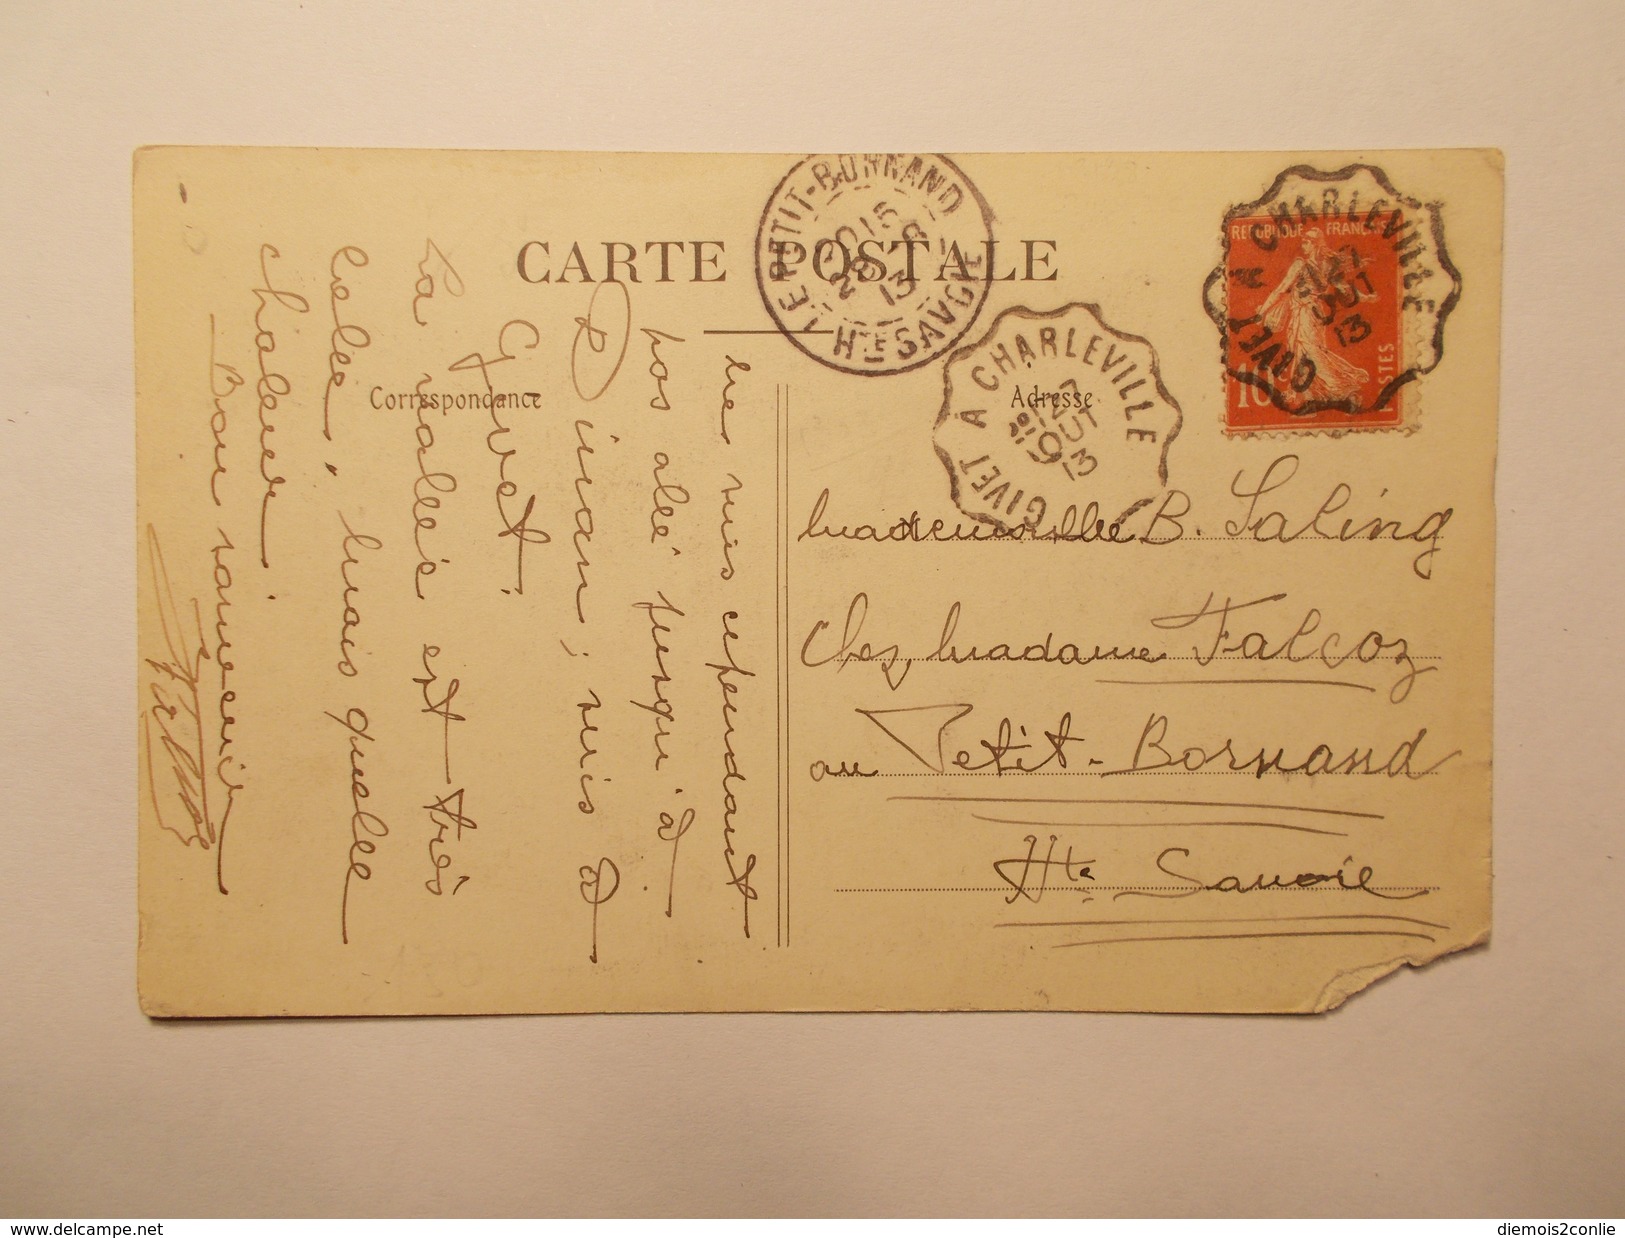 CARTE POSTALE
Correspondance
Adresse
LE PETIT-BORNAND
28
13
HTE SAVOIE
GIVET A CHARLEVILLE
13
GIVET A CHARLEVILLE
13
REPUBLIQUE FRANÇAISE
10
POSTES
Mademoiselle B. Saling
Chez, Madame Falcoz
au Petit-Bornand
Hte Savoie
ne suis cependant
pas allé jusqu'à
Dinan, suis à
Givet.
La vallée est très
belle, mais quelle
chaleur.
Bon souvenir
delcampe.net
diemois2conlie